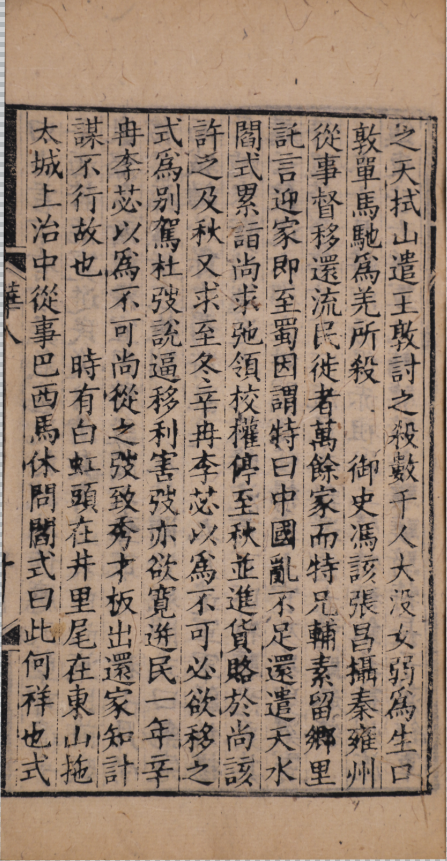 之天拭山遣王敦討之殺數千人大没女弱爲生口
敦單馬馳爲羌所殺　御史馮該張昌攝秦雍州
從事督移還流民徙者萬餘家而特兄輔素留鄉里
託言迎家即至蜀因謂特曰中國亂不足還遣天水
閻式累詣尚求弛領校權停至秋並進貨賂於尚該
許之及秋又求至冬辛冉李苾以爲不可必欲移之
式爲别駕杜弢說逼移利害弢亦欲寛迸民一年辛
冉李苾以爲不可尚從之弢致秀才板出還家知計
謀不行故也　時有白虹頭在井里尾在東山拖
太城上治中從事巴西馬休問閻式曰此何祥也式
華八
十